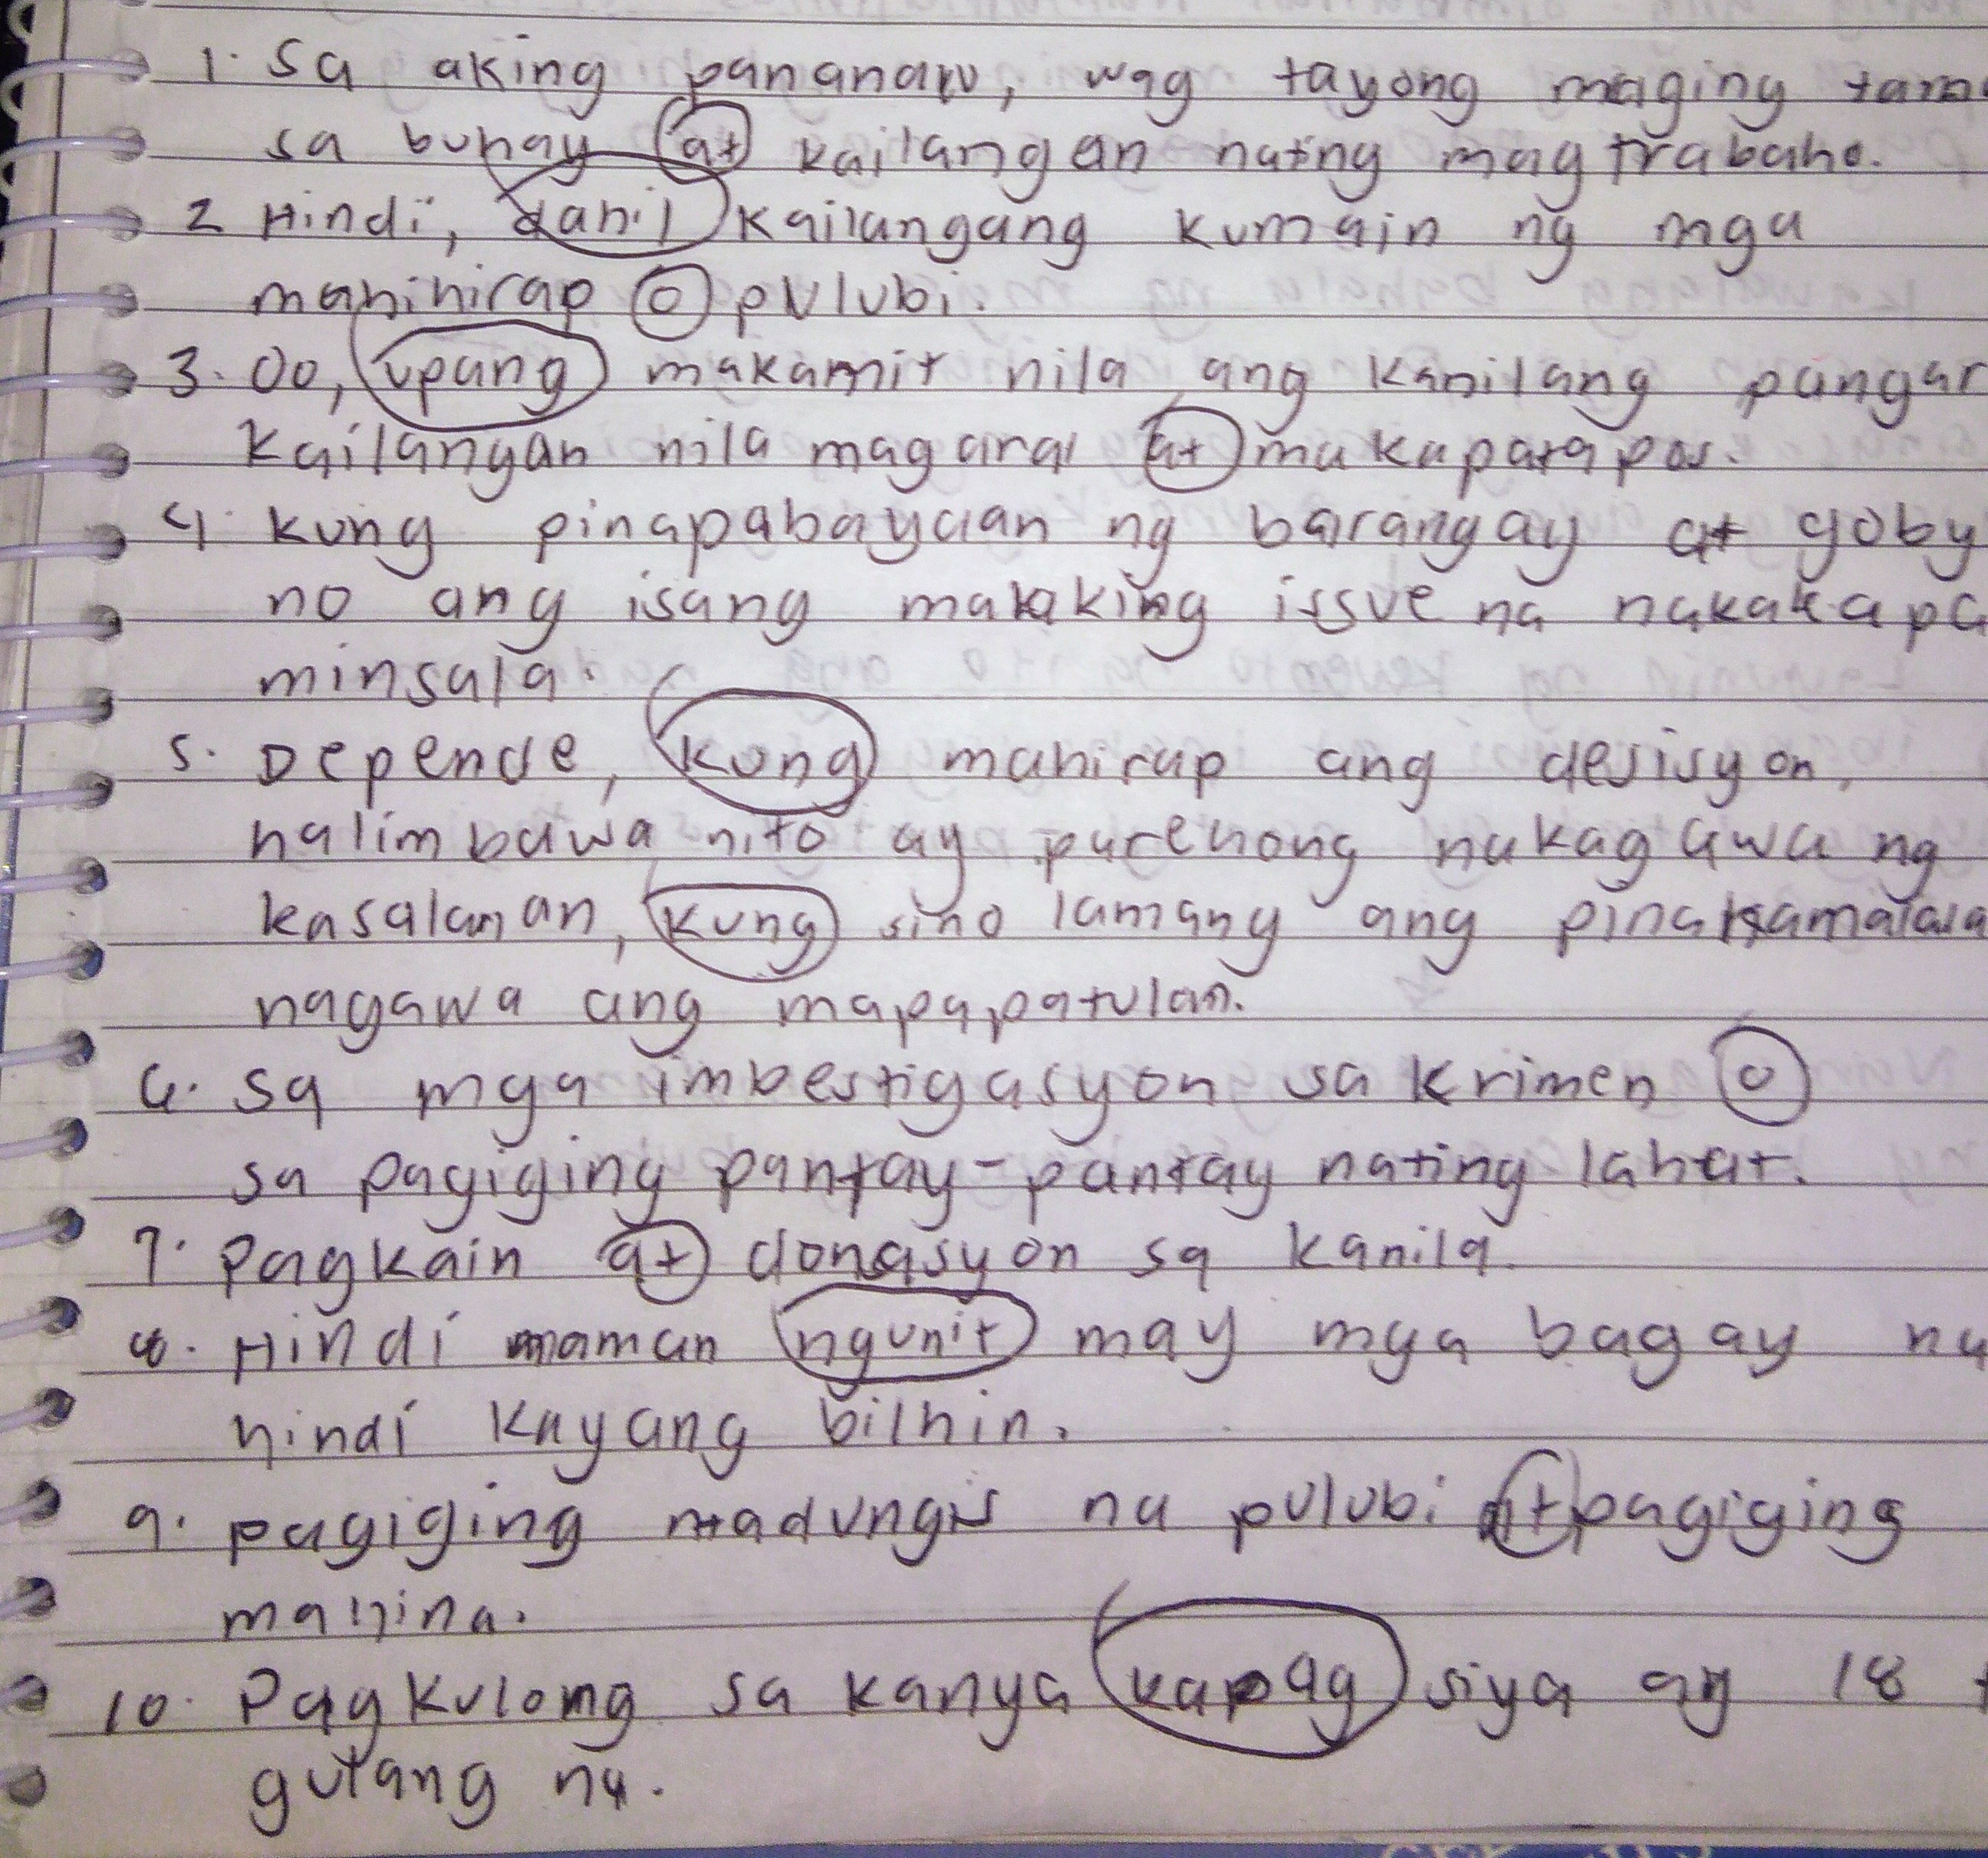 1. Sa aking pananaw, wag tayong maging
sa buhay at kailangan nating magtrabaho.
2 Hindi, dahil kailangang kumain ng mga
mahihirap o pulubi.
3. Oo, upang makamit nila ang kanilang pangar
kailangan nila magaral at makapatapos.
4. kung pinapabayaan ng barangay at goby
no ang isang malaking issue na nakakapa
minsala.
5. Depende, kung mahirap ang desisyon,
halimbawa nito ay parehong nakagawa ng
kasalanan, kung sino lamang ang pinakamalala
nagawa ang mapapatulan.
6. Sa mga imbestigasyon sa krimen o
sa pagiging pantay-pantay nating lahat.
7. Pagkain at donasyon sa kanila.
8. Hindi naman ngunit may mga bagay na
hindi kayang bilhin.
9. pagiging madungis na pulubi at pagiging
mahina.
10. Pagkulong sa kanya kapag siya ay 18 t
gulang na.